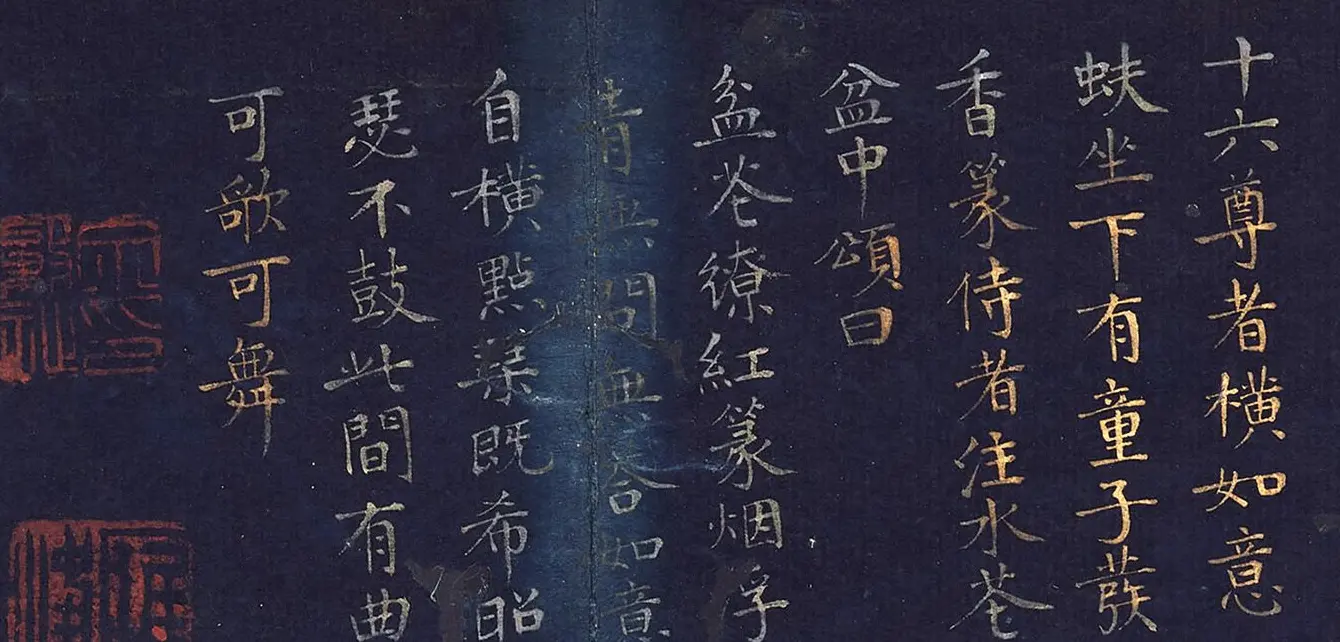 十六尊者橫如意
蚨坐下有童子發
香篆侍者注水花
盆中頌曰
盆花繚紅篆烟浮
青無問無答如意
自橫點琹既希昭
瑟不鼓此間有曲
可歌可舞